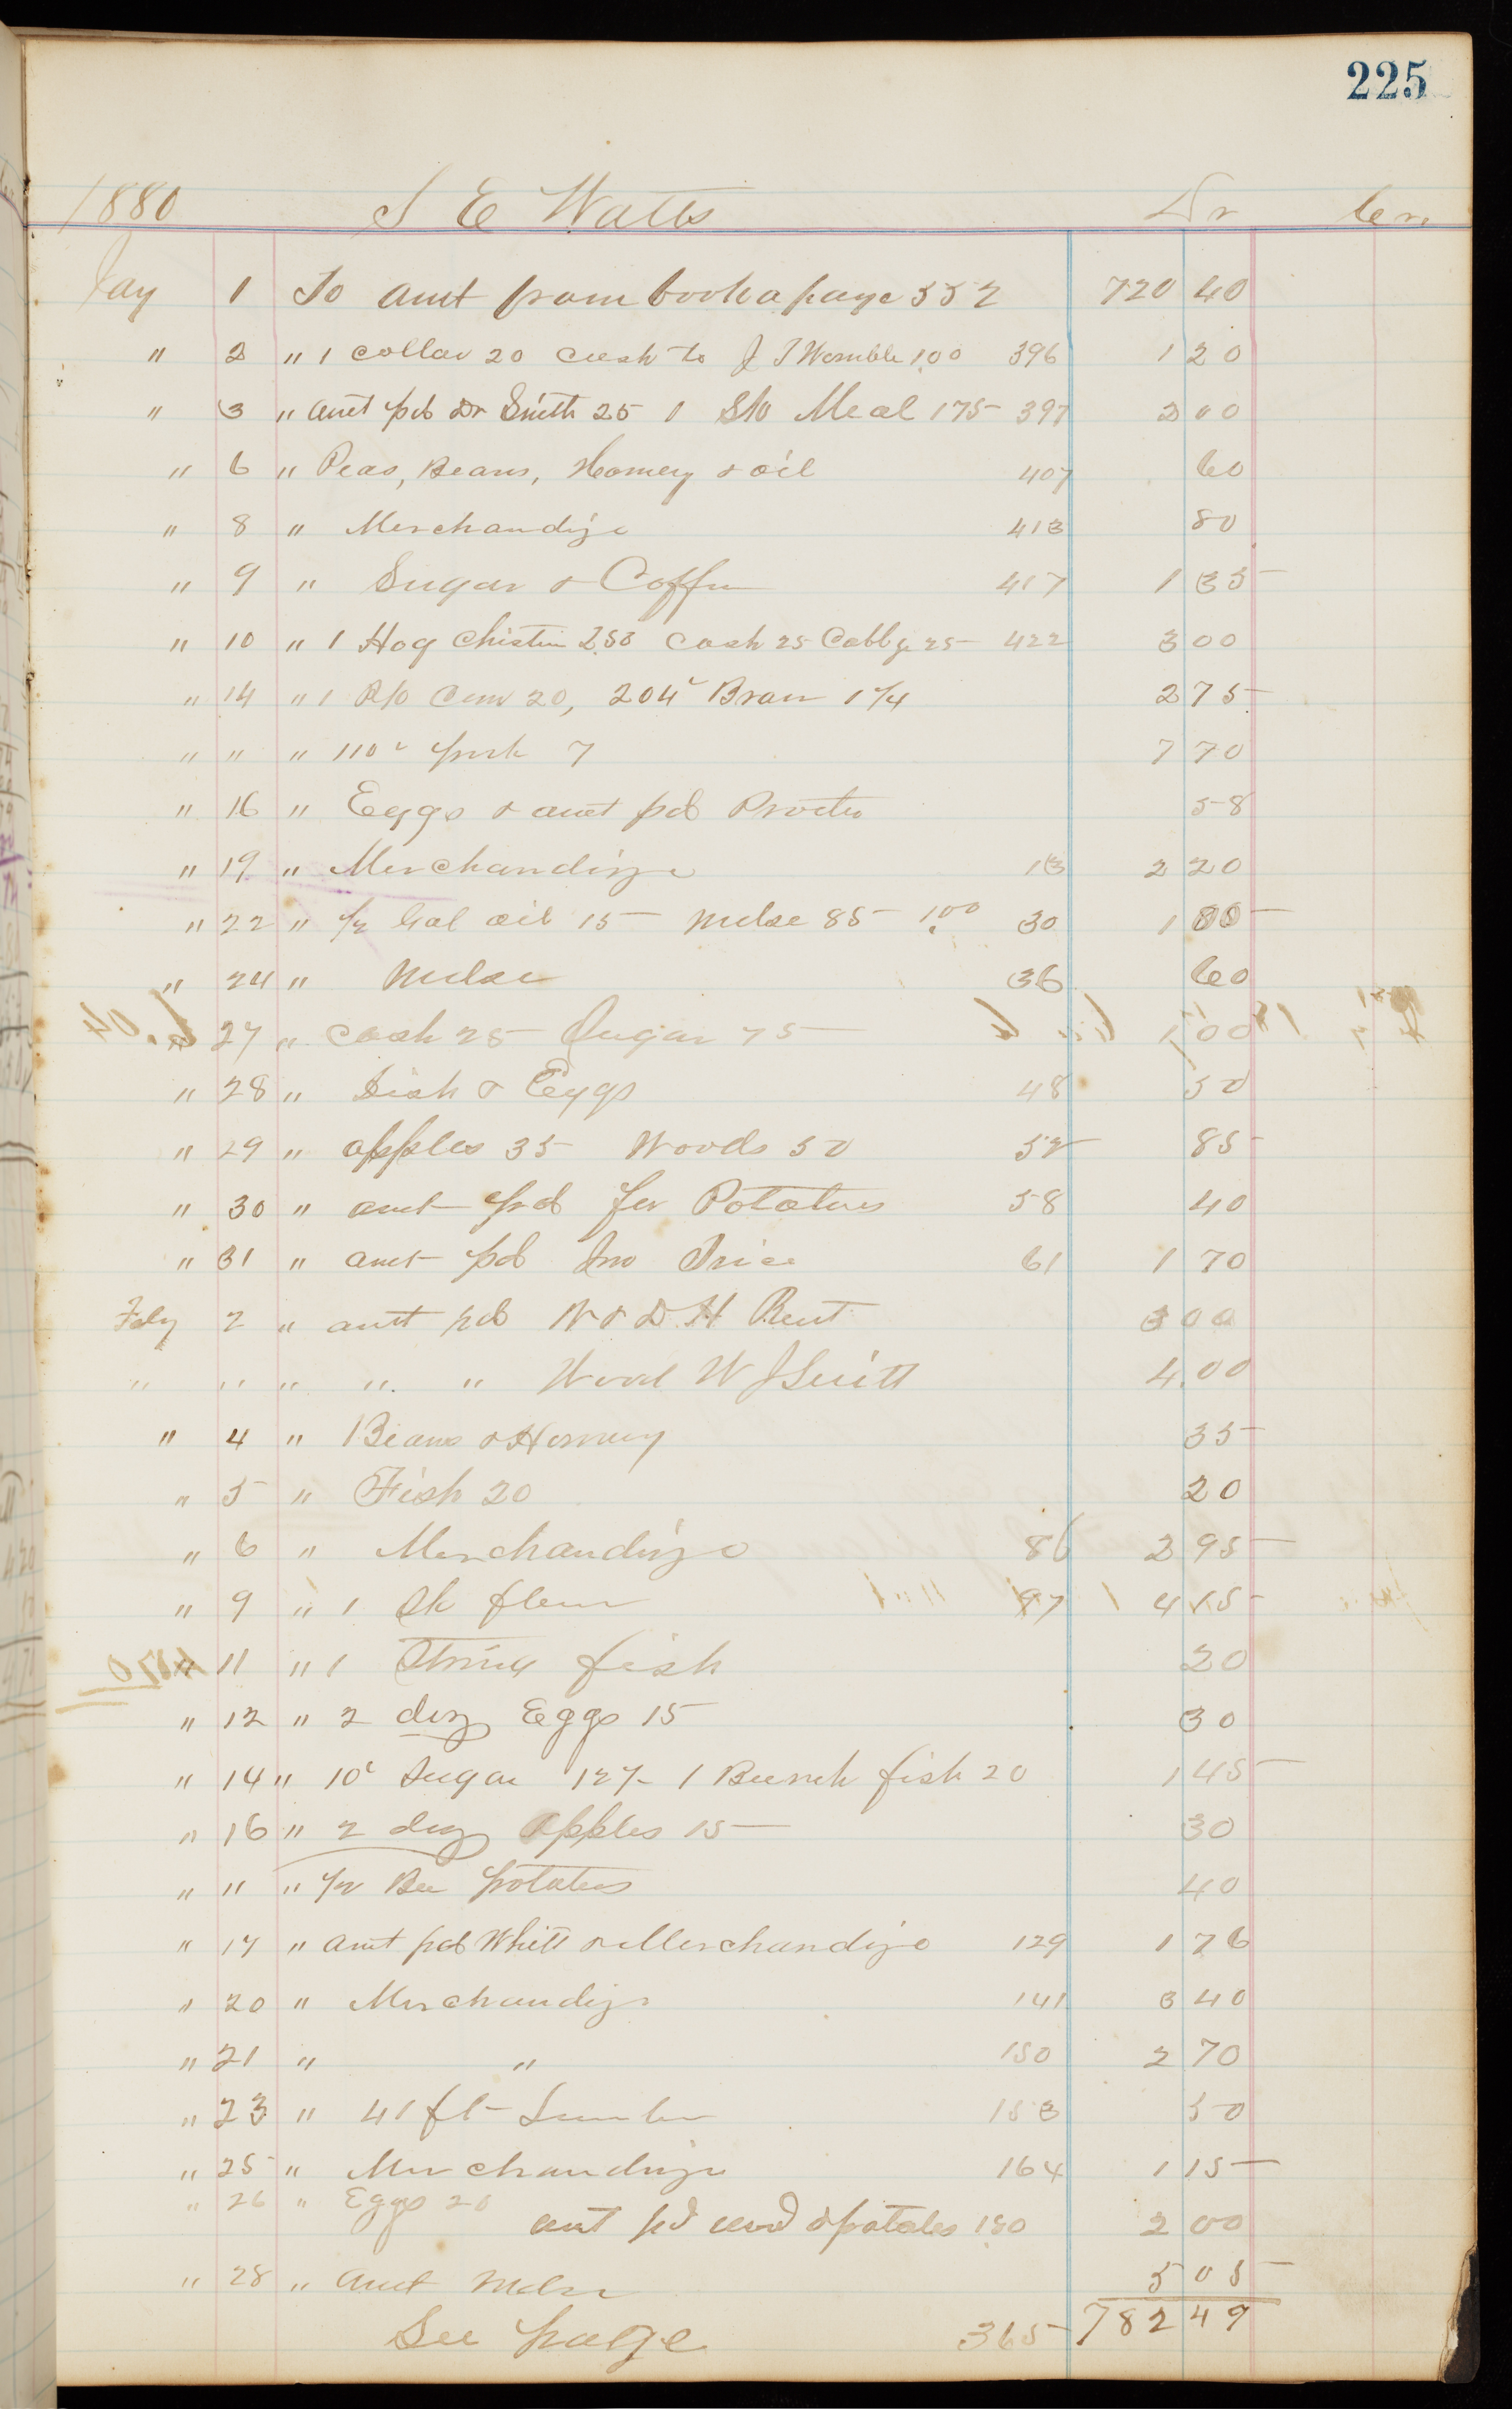 225
1880 S E Watts Dr Cr.
Jay 1 To amt from book a page 332 720 40
" 2 " 1 collar 20 Cash to J T Womble 1.00 396 1 20
" 3 " amt pd Dr Smith 25 1 Sk Meal 175 397 2 00
" 6 " Peas, Beans, Homery & oil 407 60
" 8 " Merchandize 413 80
" 9 " Sugar & Coffee 417 1 35
" 10 " 1 Hog 2.50 Cash 25 Cabbge 25 422 3 00
" 14 " 1 20, 204 Bran 1 1/4 2 75
" " " 110 pork 7 7 70
" 16 " Eggs & amt pd Procter 58
" 19 " Merchandize 13 2 20
" 22 " 1/2 Gal oil 15 Mdse 85 1.00 30 1
" 24 " Mdse 36 60
" 27 " Cash 25 Sugar 75 1 00
" 28 " Fish & Eggs 48 50
" 29 " apples 35 Woods 50 52 85
" 30 " amt pd for Potatoes 58 40
" 31 " amt pd Jno Price 61 1 70
Feby 2 " amt pd W & D H Rent 3 00
" " " " " Wood W J Smith 4.00
" 4 " Beans & Homery 35
" 5 " Fish 20 20
" 6 " Merchandize 86 2 95
" 9 " 1 Sk flour 97 4 15
" 11 " 1 String fish 20
" 12 " 2 doz Eggs 15 30
" 14 " 10 Sugar 12 1/2 1 Bunch fish 20 1 45
" 16 " 2 doz apples 15 30
" " " 1/2 Bu potatoes 40
" 17 " amt pd Whitt & Merchandize 129 1 76
" 20 " Merchandize 141 3 40
" 21 " " 150 2 70
" 23 " 41 ft Lumber 153 50
" 25 " Merchandize 164 1 15
" 26 " Eggs 20
amt pd wood & potatoes 1.80 2 00
" 28 " amt Mdse 5 05
See page 365 782 49